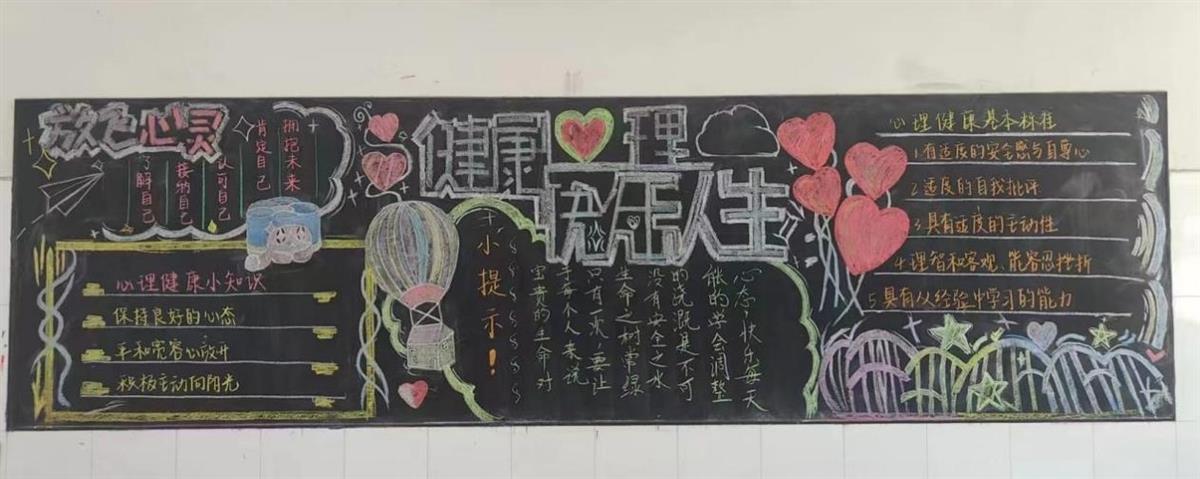 放飞心灵
了解自己
接纳自己
认可自己
肯定自己
拥抱未来
心理健康小知识
保持良好的心态
平和宽容心敞开
积极主动向阳光
健康 理
快乐人生
小提示!
宝贵的生命对
于每个人来说
只有一次,要让
生命之树常绿
没有安全之水
的浇溉是不可
能的学会调整
心态,快乐每一天
心理健康基本标准
1.有适度的安全感与自尊心
2.适度的自我批评
3.具有适度的主动性
4.理智和客观、能容忍挫折
5.具有从经验中学习的能力